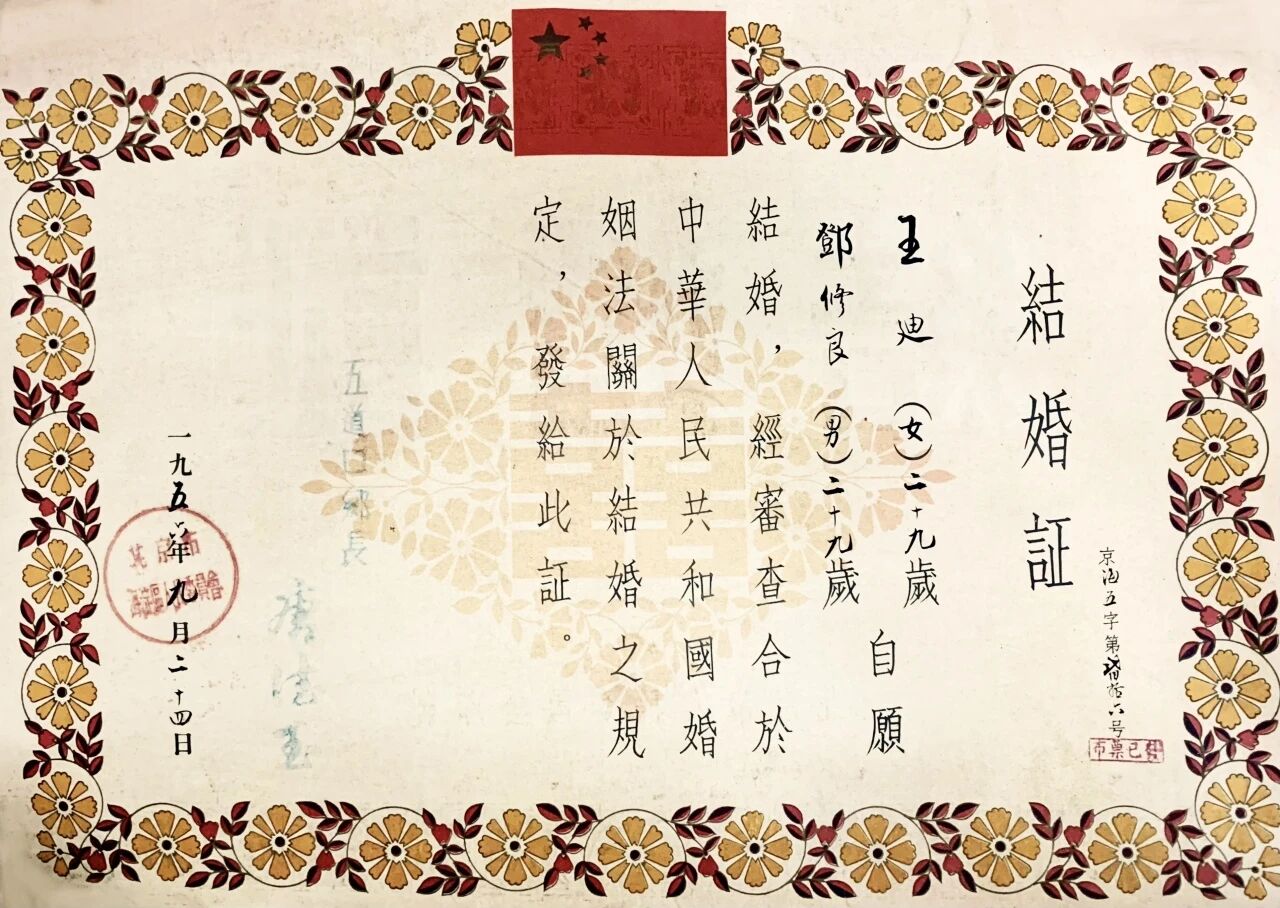 結婚証
京海五字第 拾六号
王迪(女)二十九歲
鄧修良(男)二十九歲
自願
結婚，經審查合於
中華人民共和國婚
姻法關於結婚之規
定，發給此証。
五道口鄉長
一九五六年九月二十四日
北京市